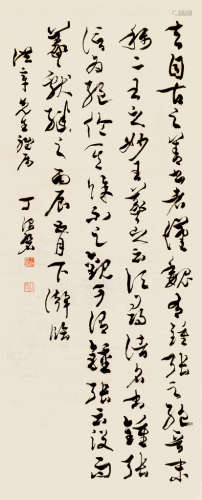 夫自古之善書者漢魏有鍾張之絕晉末
稱二王之妙王羲之云頃尋諸名書鍾張
信為絕倫其餘不足觀可謂鍾張云沒而
羲獻繼之丙辰五月下澣臨
先生雅屬
丁